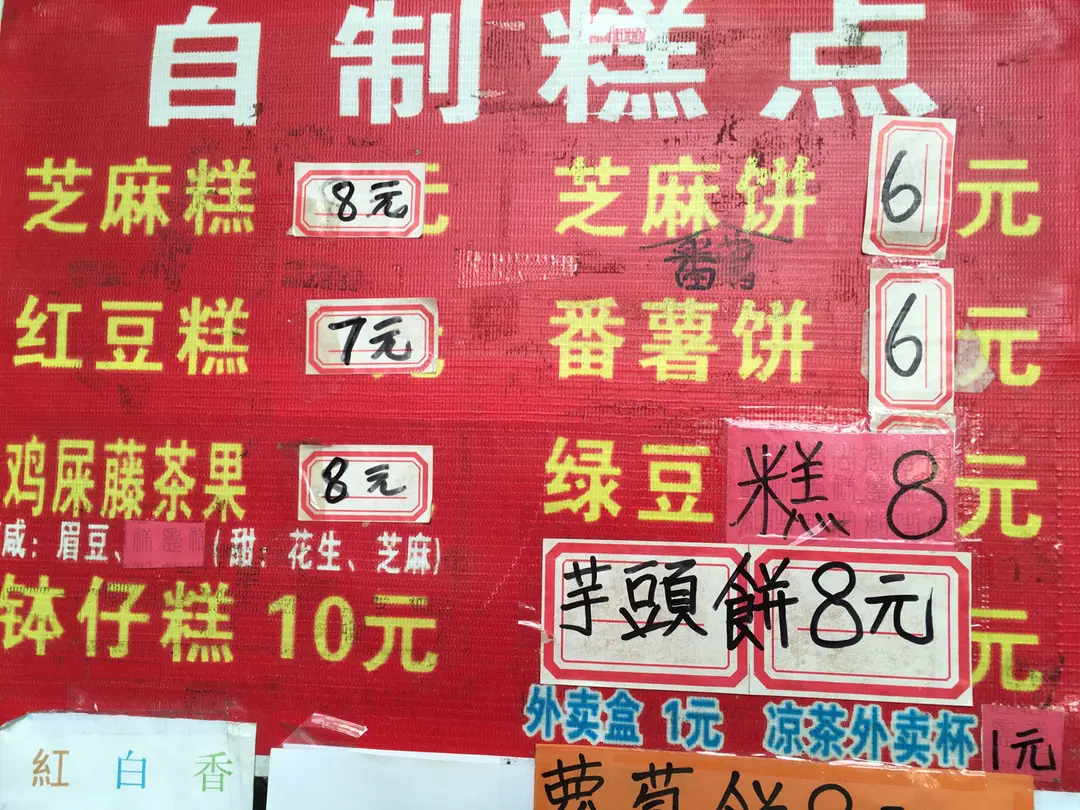 自制糕点
芝麻糕 8元
芝麻饼 6元
红豆糕 7元
番薯饼 6元
鸡屎藤茶果 8元
咸:眉豆、(甜:花生、芝麻)
绿豆糕 8元
钵仔糕 10元
芋頭餅 8元
元
外卖盒 1元 凉茶外卖杯 1元
紅白香